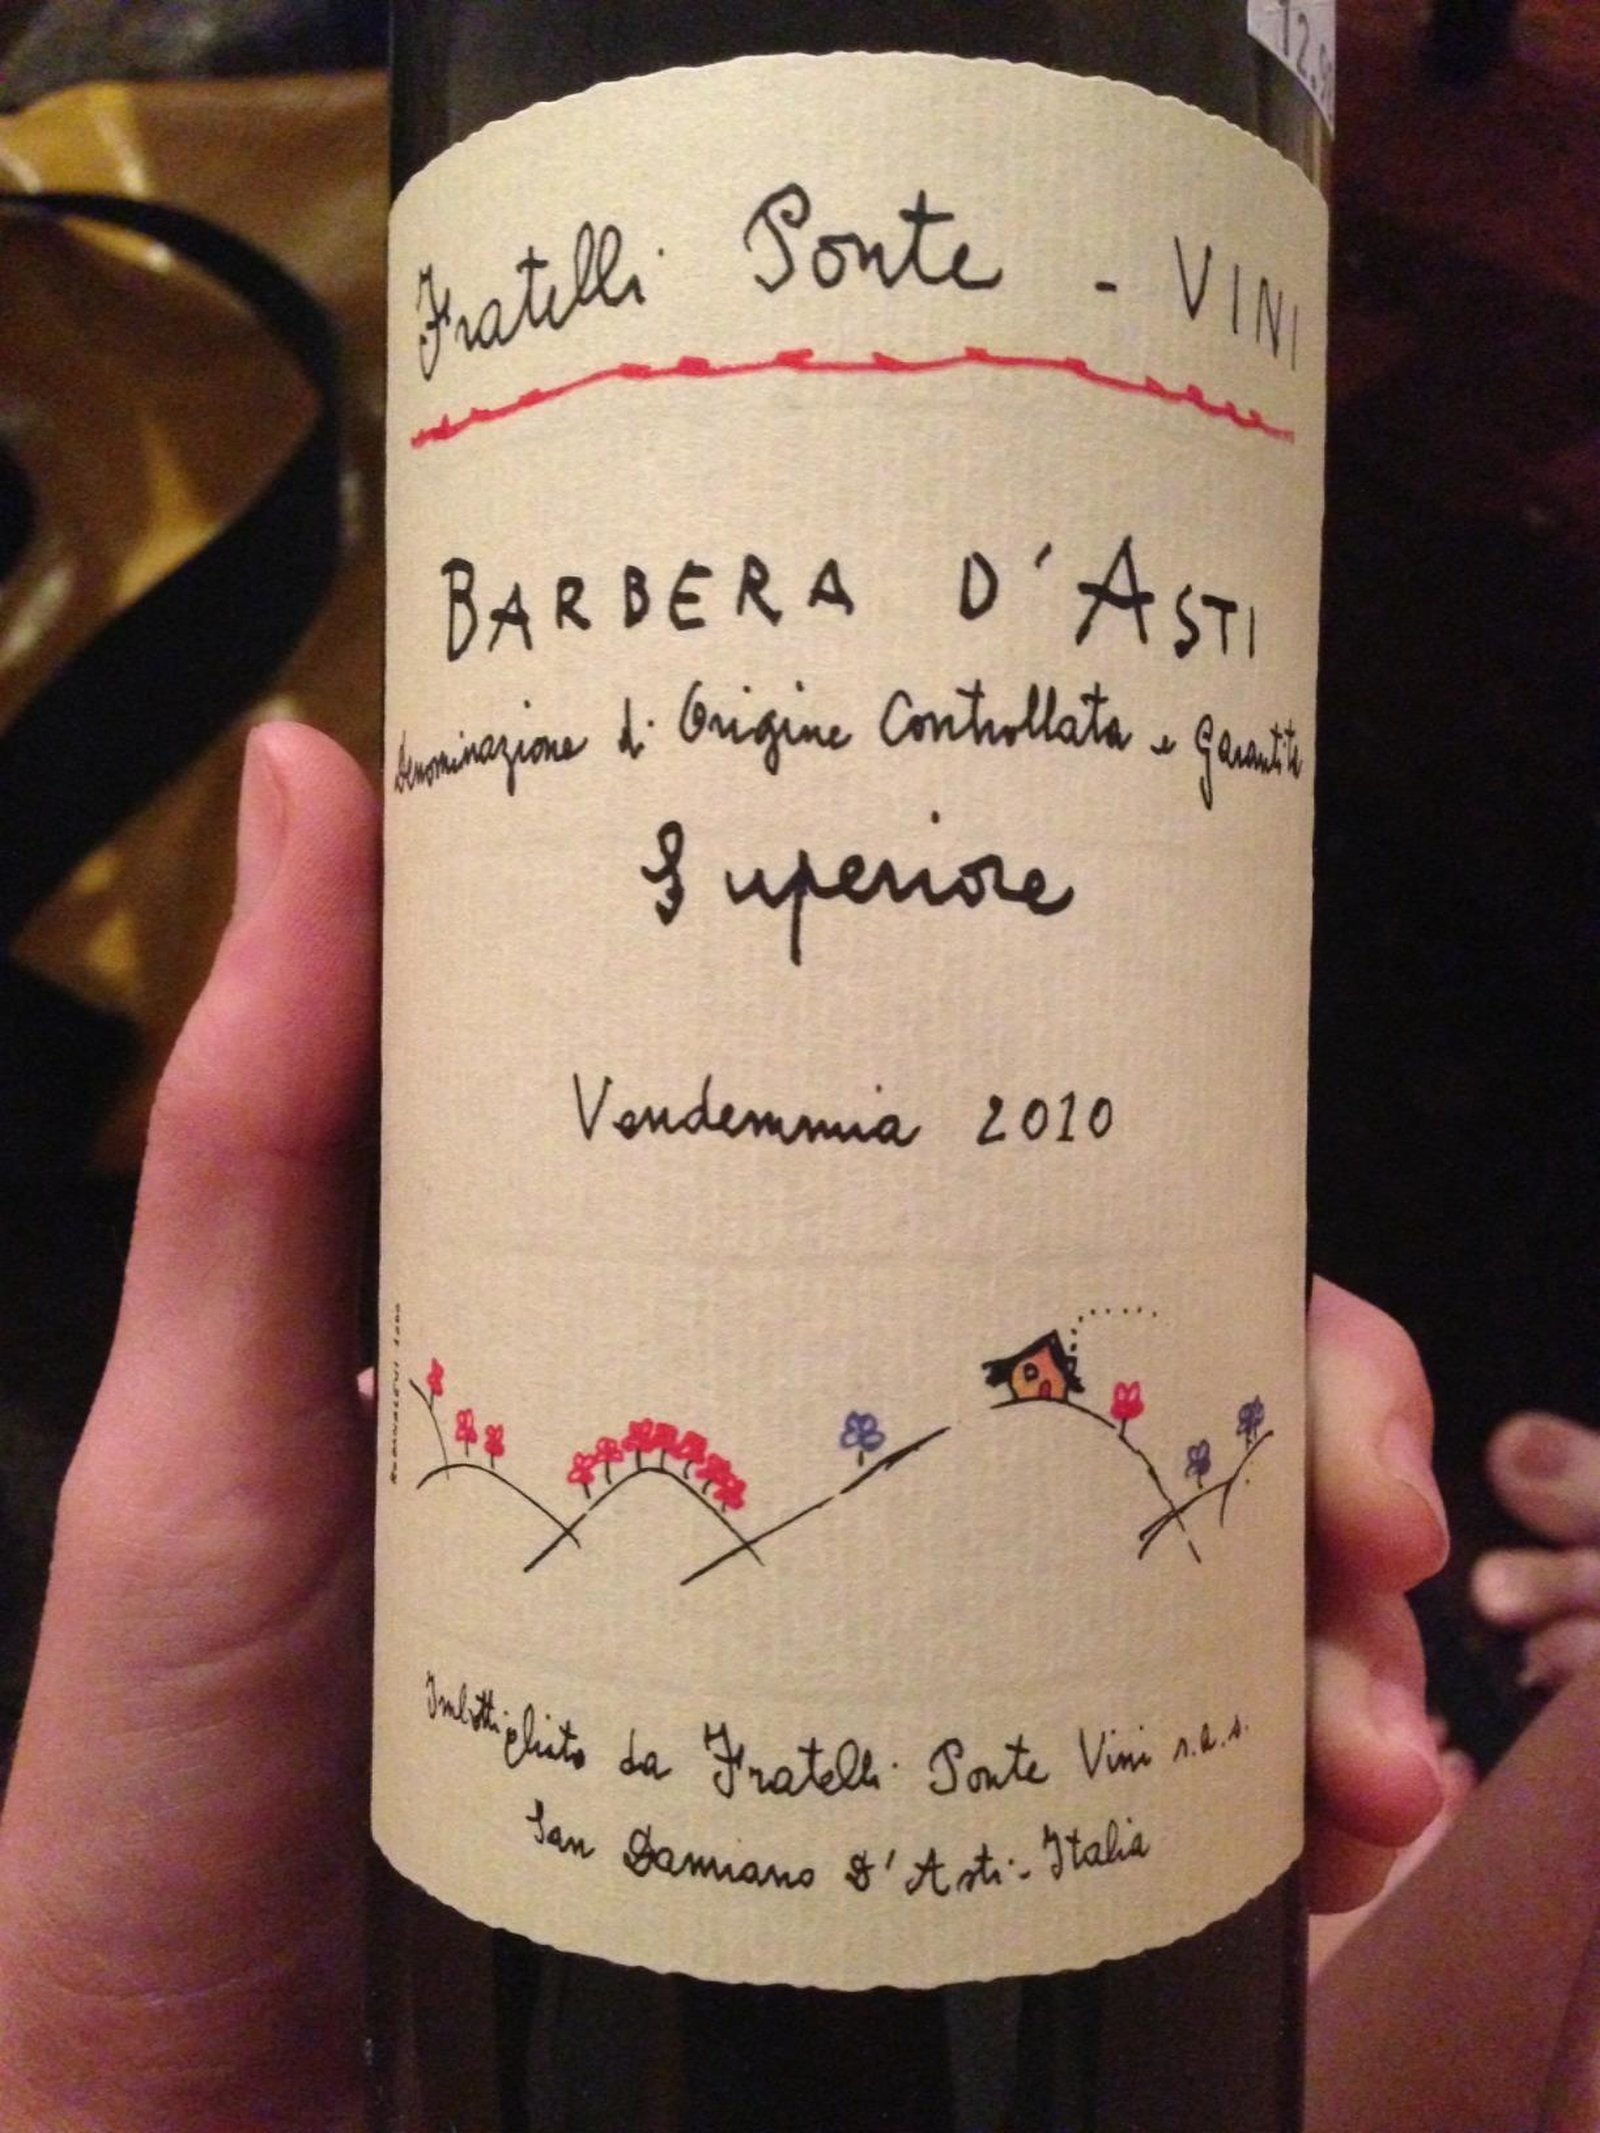 Fratelli Ponte - VINI
BARBERA D'ASTI
Denominazione di Origine Controllata e Garantita
Superiore
Vendemmia 2010
Imbottigliato da Fratelli Ponte Vini s.a.s.
San Damiano D'Asti - Italia